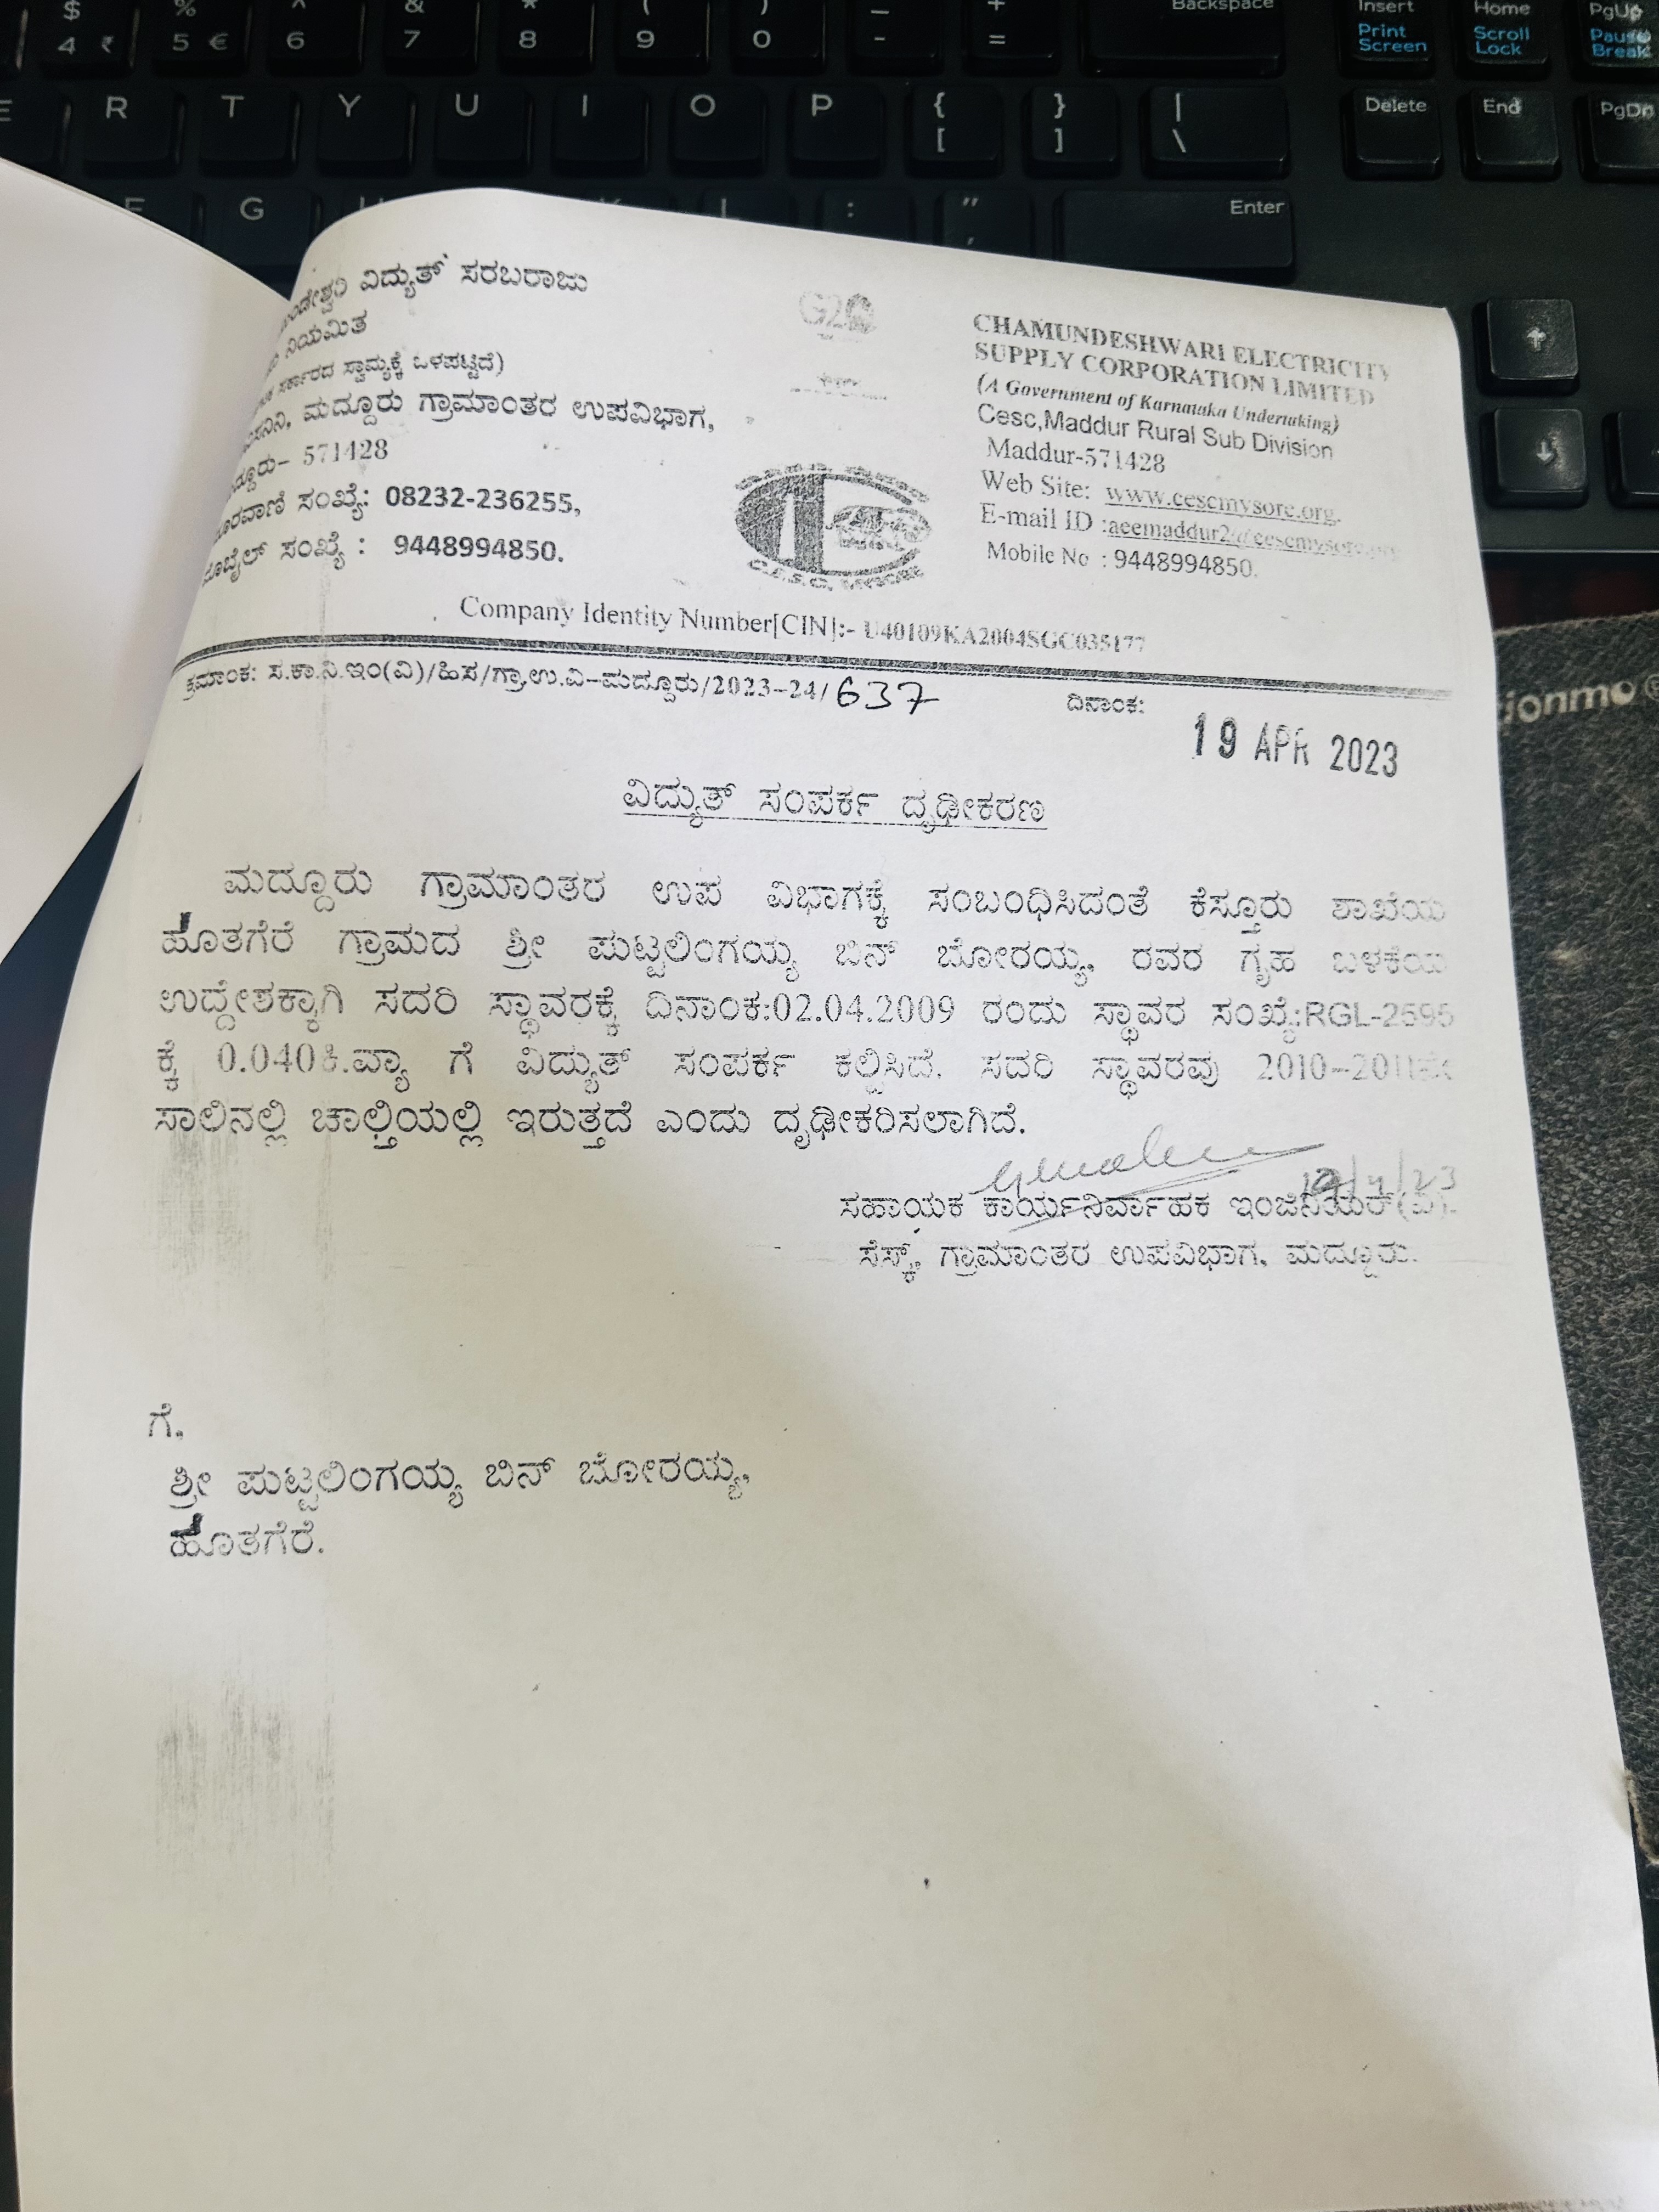 $ % ^ & * ( ) _ + Backspace Insert Home PgUp
4 ₹ 5 € 6 7 8 9 0 - = Print Screen Scroll Lock Pause Break
E R T Y U I O P { [ } ] | \ Delete End PgDn
F G L : " ' Enter
ವಿದ್ಯುತ್ ಸರಬರಾಜು
ನಿಯಮಿತ
ಸರ್ಕಾರದ ಸ್ವಾಮ್ಯಕ್ಕೆ ಒಳಪಟ್ಟಿದೆ)
ಮದ್ದೂರು ಗ್ರಾಮಾಂತರ ಉಪವಿಭಾಗ,
571428
ಸಂಖ್ಯೆ: 08232-236255,
ಸಂಖ್ಯೆ : 9448994850.
G20
CHAMUNDESHWARI ELECTRICITY
SUPPLY CORPORATION LIMITED
(A Government of Karnataka Undertaking)
Cesc,Maddur Rural Sub Division
Maddur-571428
Web Site: www.cescmysore.org.
E-mail ID :aeemaddur2@cescmysore.org
Mobile No : 9448994850.
Company Identity Number[CIN]:- U40109KA2004SGC035177
ಕ್ರಮಾಂಕ: ಸ.ಕಾ.ನಿ.ಇಂ(ವಿ)/ಹಿಸ/ಗ್ರಾ.ಉ.ವಿ-ಮದ್ದೂರು/2023-24/637 ದಿನಾಂಕ:
19 APR 2023
ವಿದ್ಯುತ್ ಸಂಪರ್ಕ ದೃಢೀಕರಣ
ಮದ್ದೂರು ಗ್ರಾಮಾಂತರ ಉಪ ವಿಭಾಗಕ್ಕೆ ಸಂಬಂಧಿಸಿದಂತೆ ಕೆಸ್ತೂರು ಶಾಖೆಯ
ಹೊತಗೆರೆ ಗ್ರಾಮದ ಶ್ರೀ ಪುಟ್ಟಲಿಂಗಯ್ಯ ಬಿನ್ ಬೋರಯ್ಯ, ರವರ ಗೃಹ ಬಳಕೆಯ
ಉದ್ದೇಶಕ್ಕಾಗಿ ಸದರಿ ಸ್ಥಾವರಕ್ಕೆ ದಿನಾಂಕ:02.04.2009 ರಂದು ಸ್ಥಾವರ ಸಂಖ್ಯೆ:RGL-2595
ಕ್ಕೆ 0.040ಕಿ.ವ್ಯಾ ಗೆ ವಿದ್ಯುತ್ ಸಂಪರ್ಕ ಕಲ್ಪಿಸಿದೆ. ಸದರಿ ಸ್ಥಾವರವು 2010-2011ನೇ
ಸಾಲಿನಲ್ಲಿ ಚಾಲ್ತಿಯಲ್ಲಿ ಇರುತ್ತದೆ ಎಂದು ದೃಢೀಕರಿಸಲಾಗಿದೆ.
19/4/23
ಸಹಾಯಕ ಕಾರ್ಯನಿರ್ವಾಹಕ ಇಂಜಿನಿಯರ್(ವಿ).
ಸೆಸ್ಕ್, ಗ್ರಾಮಾಂತರ ಉಪವಿಭಾಗ, ಮದ್ದೂರು.
ಗೆ,
ಶ್ರೀ ಪುಟ್ಟಲಿಂಗಯ್ಯ ಬಿನ್ ಬೋರಯ್ಯ,
ಹೊತಗೆರೆ.